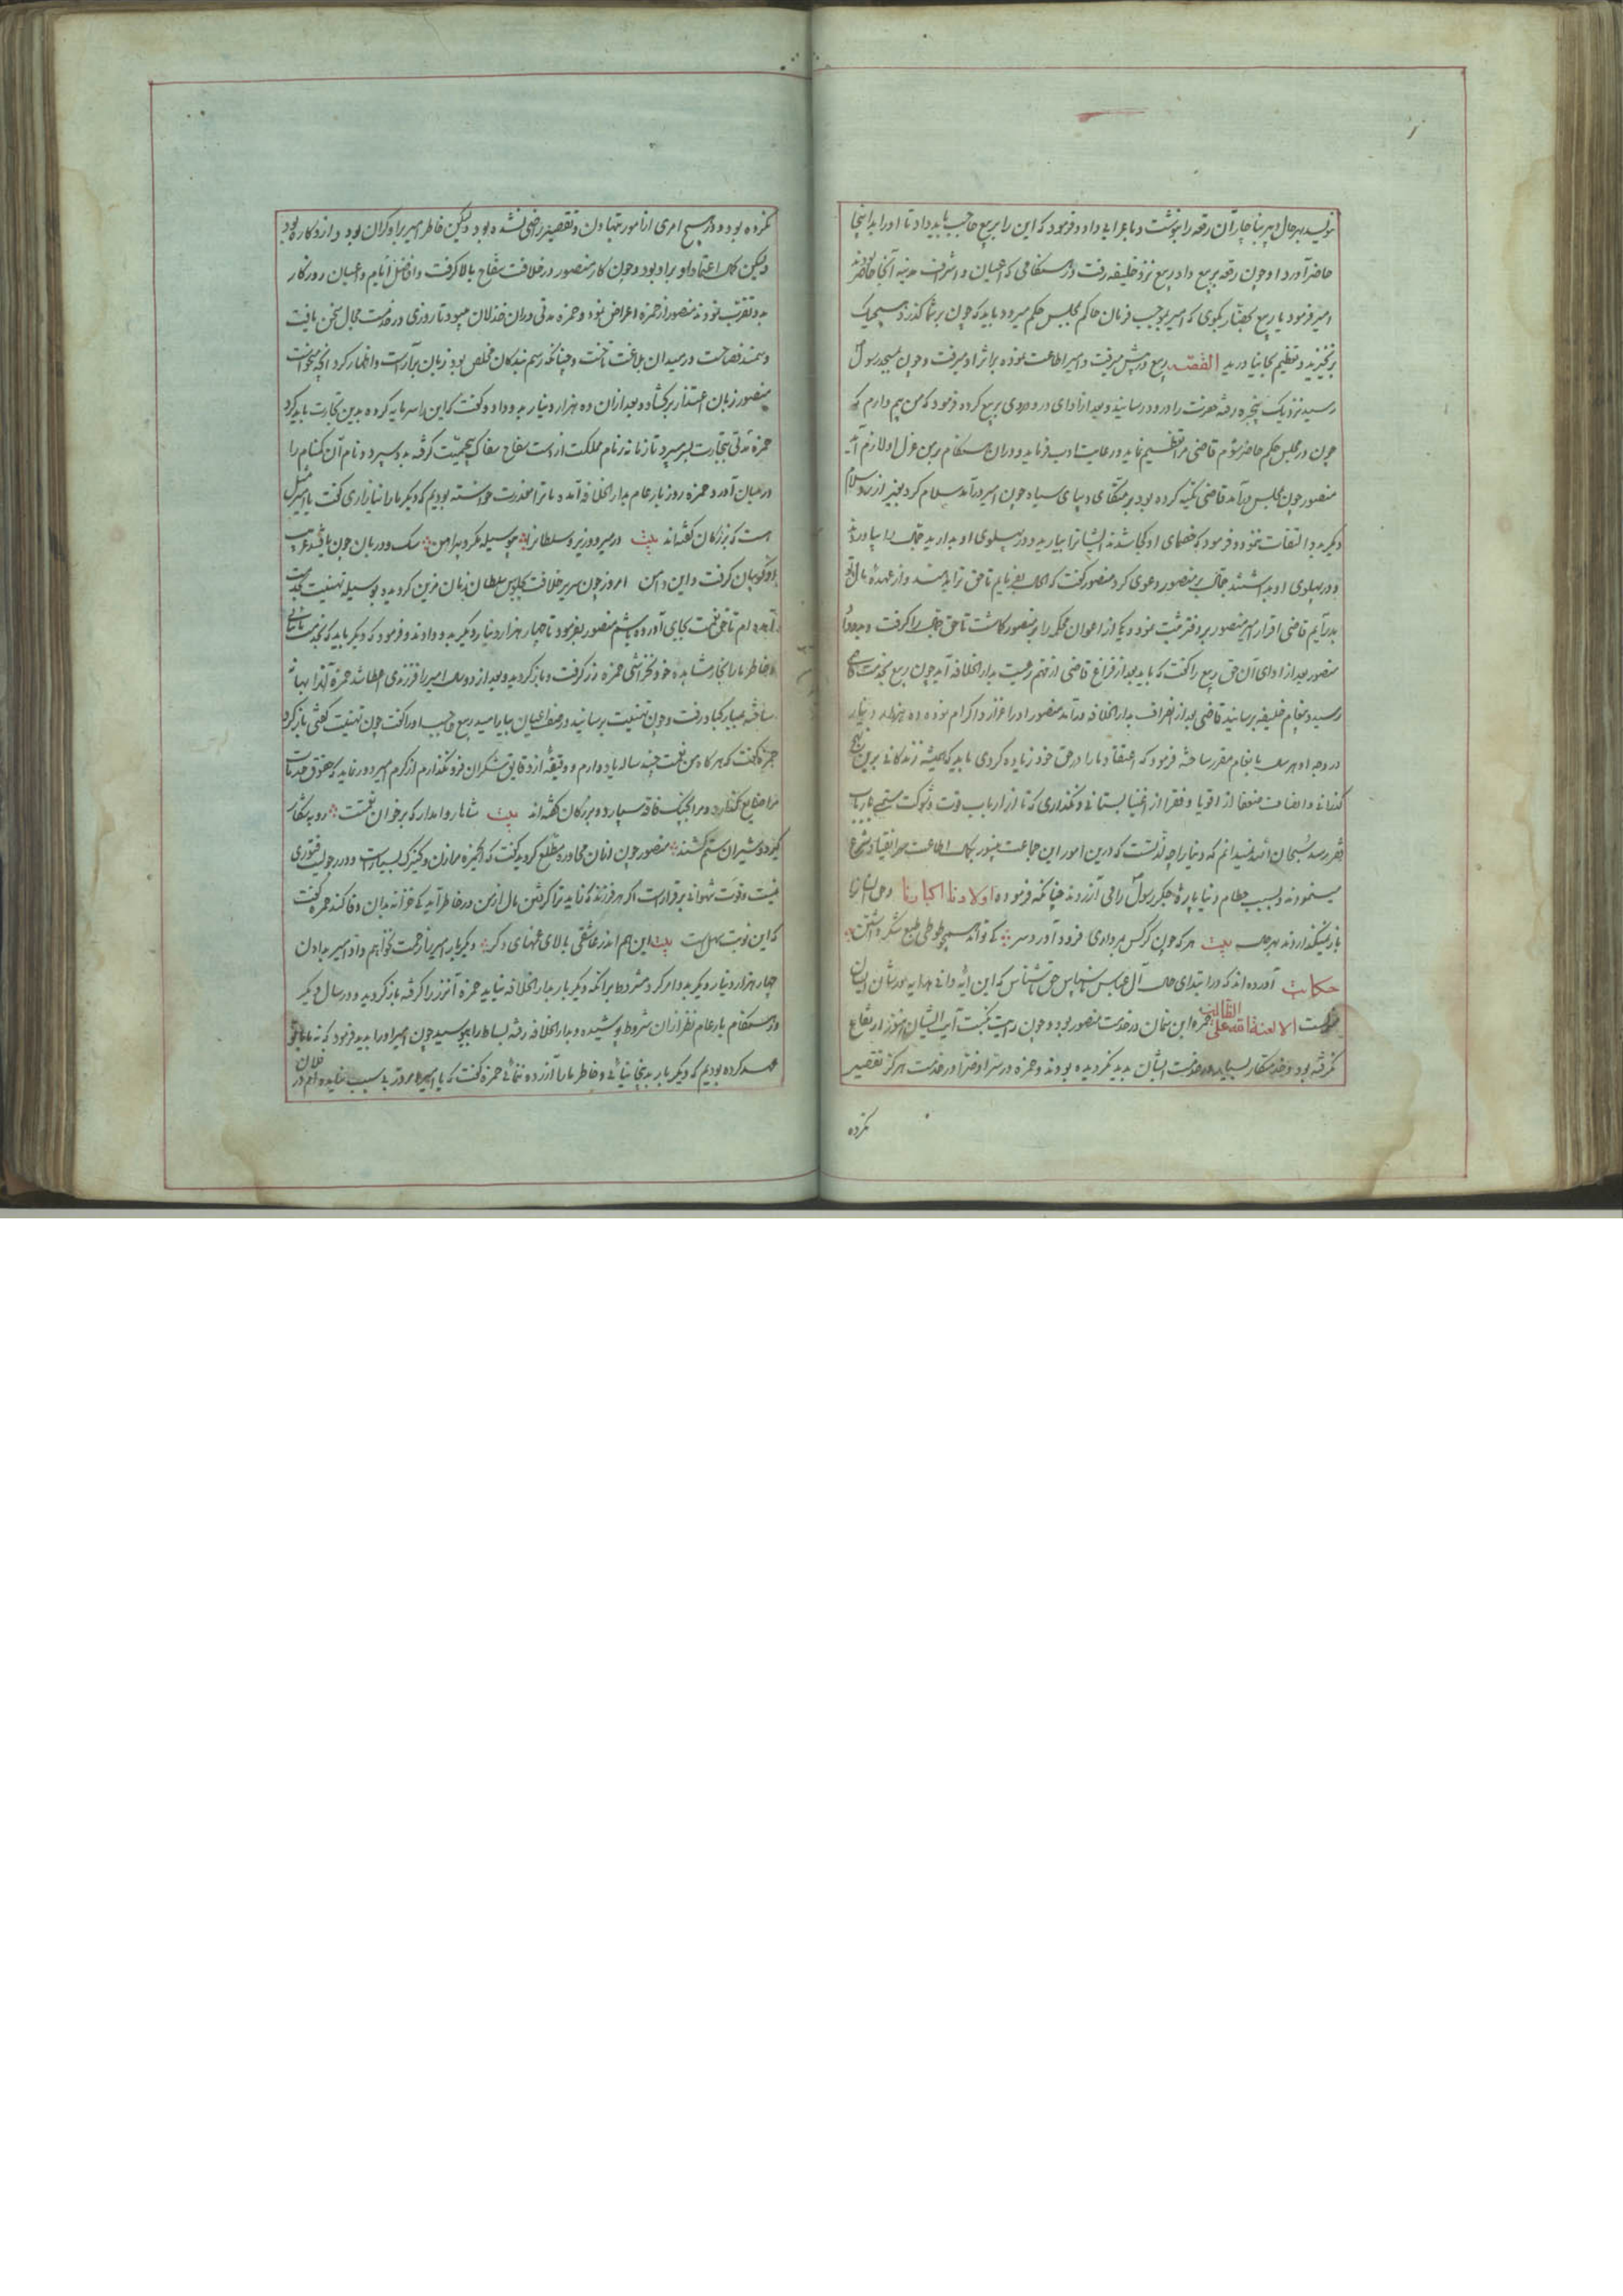 نویسد بهر حال دبیر بناچار آن رقعه را بنوشت و باعرابی داد و فرمود که این را بربیع حاجب باید داد تا او را بدینجا
حاضر آورد او چون رقعه بربیع داد ربیع نزد خلیفه رفت در هنگامی که اعیان و اشراف مدینه آنجا حاضر بودند
امیر فرمود یا ربیع بحضار بگوی که امیر بموجب فرمان حاکم بمجلس حکم میرود باید که چون بر شما گذرد هیچیک
برنخیزید و تعظیم بجا نیاورید القصه ربیع در پیش میرفت و امیر اطاعت نموده بر اثر او میرفت و چون بمسجد رسول
رسید نزدیک پنجره رفته حضرت را درود رسانید و بعد از ادای درود روی بربیع کرده فرمود که من بیم دارم که
چون در مجلس حکم حاضر شوم قاضی مرا تعظیم نماید و رعایت ادب فرماید و در آن هنگام بر من عزل او لازم آید
منصور چون بمجلس درآمد قاضی تکیه کرده بود بر متکای دیبای سیاه چون امیر درآمد سلام کرد بغیر از رد سلام
دیگر بدو التفات ننمود و فرمود که خصمای او کجا شدند ایشانرا بیارید و در پهلوی او بدارید جمال را بیاوردند
و در پهلوی او بداشتند جمال بر منصور دعوی کرد منصور گفت که الحال بفرمایم تا حق ترا بدهند و از عهده مال تو
بدر آیم قاضی اقرار امیر منصور بر دفتر ثبت نمود و یکی از اعوان محکمه را بر منصور گماشت تا حق جمال را گرفت و
منصور بعد از ادای آن حق ربیع را گفت که باید بعد از فراغ قاضی از مهم رعیت بدار الخلافه آید چون ربیع بخدمت قاضی
رسید و پیغام خلیفه برسانید قاضی بعد از انصراف بدار الخلافه درآمد منصور او را اعزاز و اکرام نموده ده هزار دینار
در وجه او هر سال بانعام مقرر ساخته فرمود که اعتقاد ما را در حق خود زیاده کردی باید که همیشه زندگانی برین نهج
گذرانی و انصاف ضعفا از اقویا و فقرا از اغنیا بستانی و نگذاری که تا از ارباب قوت و شوکت ستمی بارباب
فقر برسد سبحان الله نمیدانم که دنیا را چه لذتست که درین امور این جماعت مزبور کمال اطاعت و انقیاد شرع
مینمودند و بسبب حطام دنیا پاره جگر رسول را می آزردند چنانکه فرموده اولادنا اکبادنا و جهان را
باز میگذاردند بهر حال بیت هر که چون کرکس بمرداری فرود آورد سر کی تواند همچو طوطی طبع شکر داشتن
حکایت آورده اند که در ابتدای حال آل عباس ناسپاس حق ناشناس که این آیه وانی هدایه در شأن ایشان
است الا لعنة الله علی الظالمین حمزه ابن در خدمت منصور بود و چون رایت نکبت آیت ایشان هنوز ارتفاع
نگرفته بود و خدمتکار بسیار در خدمت ایشان پدید نگردیده بودند و حمزه در سراء و ضرا در خدمت هرگز تقصیر
نکرده
نکرده بود و در هیچ امری از امور بتهاون و تقصیر راضی نشده بود ولیکن خاطر امیر بر او گران بود و از کار
ولیکن کمال اعتماد او بر او بود و چون کار منصور در خلافت سفاح بالا گرفت و افاضل ایام و اعیان روزگار
بدو تقرب نمودند منصور از حمزه اعراض نمود و حمزه مدتی در آن خذلان میبود تا روزی در خدمت مجال سخن یافت
و سمند فصاحت در میدان بلاغت تاخت و چنانکه رسم بندگان مخلص بود زبان برآراست و اظهار کرد آنچه میخواست
منصور زبان اعتذار برگشاد و بعد از آن ده هزار دینار بدو داد و گفت که این را سرمایه کرده بدین تجارت باید کرد
حمزه مدتی بتجارت بسر میبرد تا زمانه زمام مملکت از دست سفاح سفاک بی حمیت گرفته بدو سپرد و نام آن گمنام را
در میان آورد حمزه روز بار عام بدار الخلافه آمده ما ترا معذرت خواسته بودیم که دیگر ما را نیازاری گفت یا امیر مثل
است که بزرگان گفته اند بیت در میر و وزیر و سلطان را بی وسیله مگرد پیرامن سگ و دربان چون یافتند غریب
او گریبان گرفت و این دامن امروز چون سریر خلافت بجلوس سلطان زمان مزین گردید بوسیله تهنیت بخدمت
آمده ام تا حق نعمت بجای آورده باشم منصور بفرمود تا چهار هزار دینار دیگر بدو دادند و فرمود که دیگر باید که بخدمت ما نیائی
و خاطر ما را بخار مشاهده خود نخراشی حمزه زر گرفت و باز گردید و بعد از دو سال امیر را فرزندی عطا شد حمزه آنرا بهانه
ساخته بدیار رفت و چون تهنیت برسانید در صف اعیان بیارامید ربیع حاجب او را گفت چون تهنیت گفتی باز گرد
حمزه گفت که هر گاه من نعمت چند ساله یاد دارم و دقیقه از دقایق شکر آن فرو نگذارم از کرم امیر دور نماید که حقوق خدمت
مرا ضایع گذارد و مرا بچنگ فاقه سپارد و بزرگان گفته اند بیت شاها روا مدار که بر خوان نعمتت روبه شکار
گیرد و شیران ستم کشند منصور چون از آن محاوره مطلع گردید گفت که حمزه را زن و کنیزک بسیار است و در رجولیت فتوری
نیست و قوت شهوانی برقرار است اگر هر فرزند که زاید ترا گرفتن مال از من در خاطر آید کی خزانه بدان وفا کند حمزه گفت
که این نوبت سهل است بیت این هم اندر عاشقی بالای غمهای دگر دیگر بار امیر را زحمت نخواهم داد امیر بدادن
چهار هزار دینار دیگر بدو امر کرد مشروط بر آنکه دیگر بار بدار الخلافه نیاید حمزه آن زر را گرفته باز گردید و در سال دیگر
در هنگام بار عام نظر از آن شروط پوشیده و بدار الخلافه رفته بساط را بوسید چون امیر او را بدید فرمود که نه ما با تو
عهد کرده بودیم که دیگر بار بدینجا نیائی و خاطر ما را آزرده ننمائی حمزه گفت که یا امیر امروز بی سبب نیامده ام در فلان